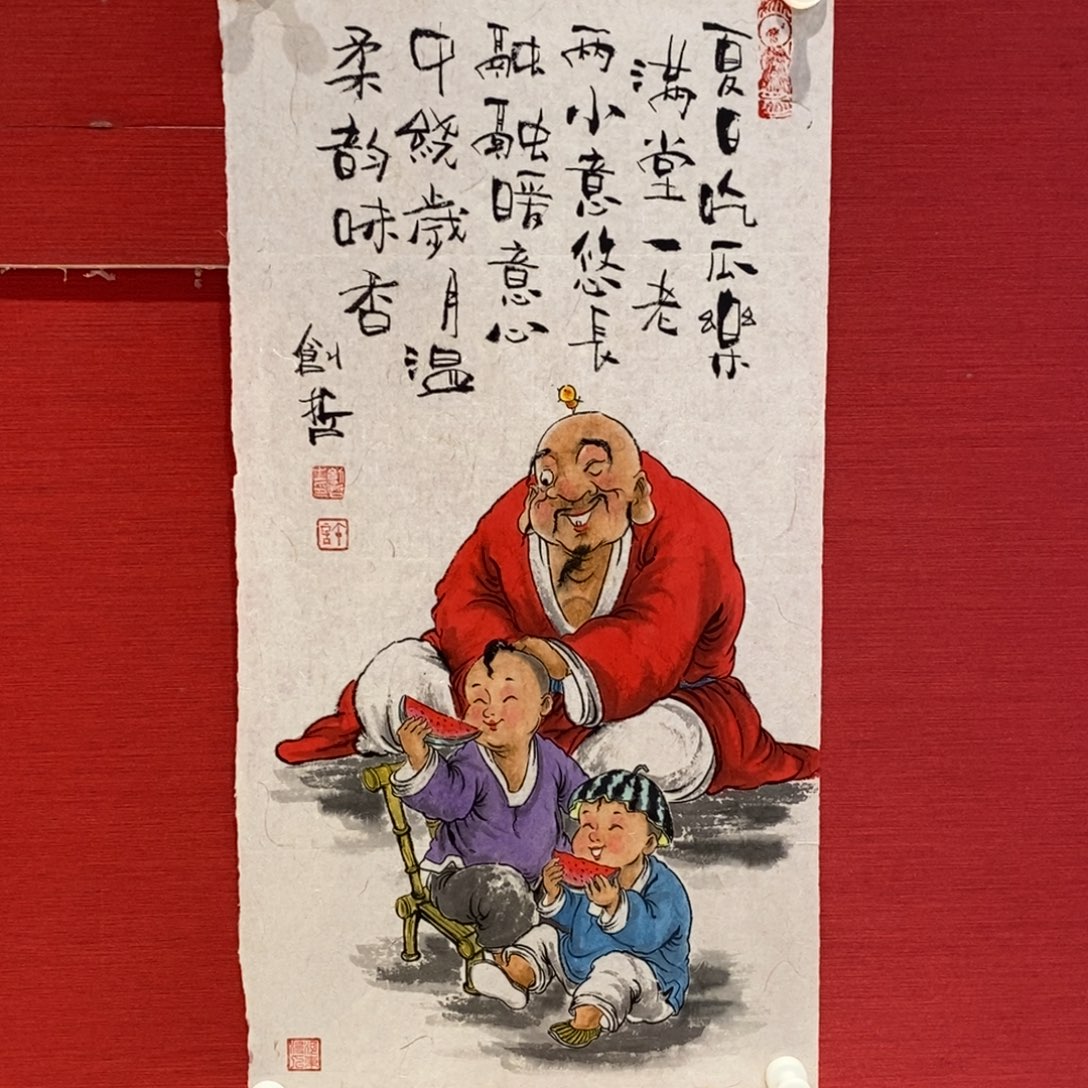 夏日吃瓜樂
满堂一老
两小意悠長
融融暖意心
中繞歲月温
柔韵味香
創哲